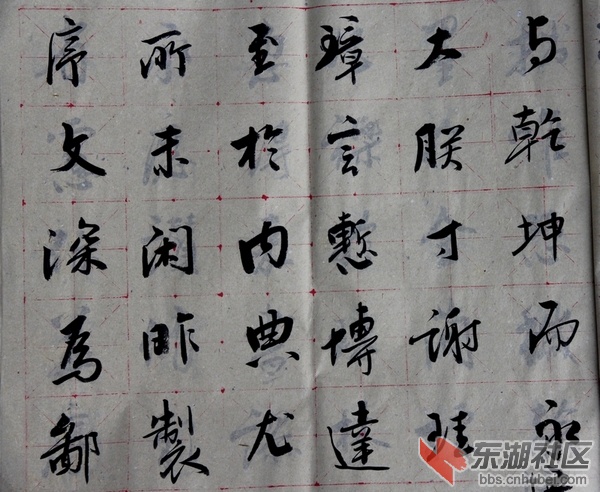 与乾坤而永
大朕才謝珪
璋言慙博達
至於内典尤
所未閑昨製
序文深為鄙
东湖社区
bbs.cnhubei.com